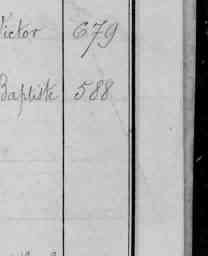 Victor 679
Baptiste 588